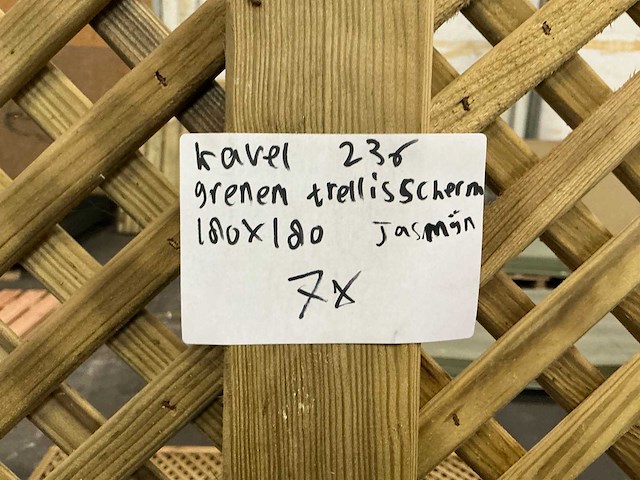 kavel 236
grenen trellisscherm
180x180 Jasmijn
7x